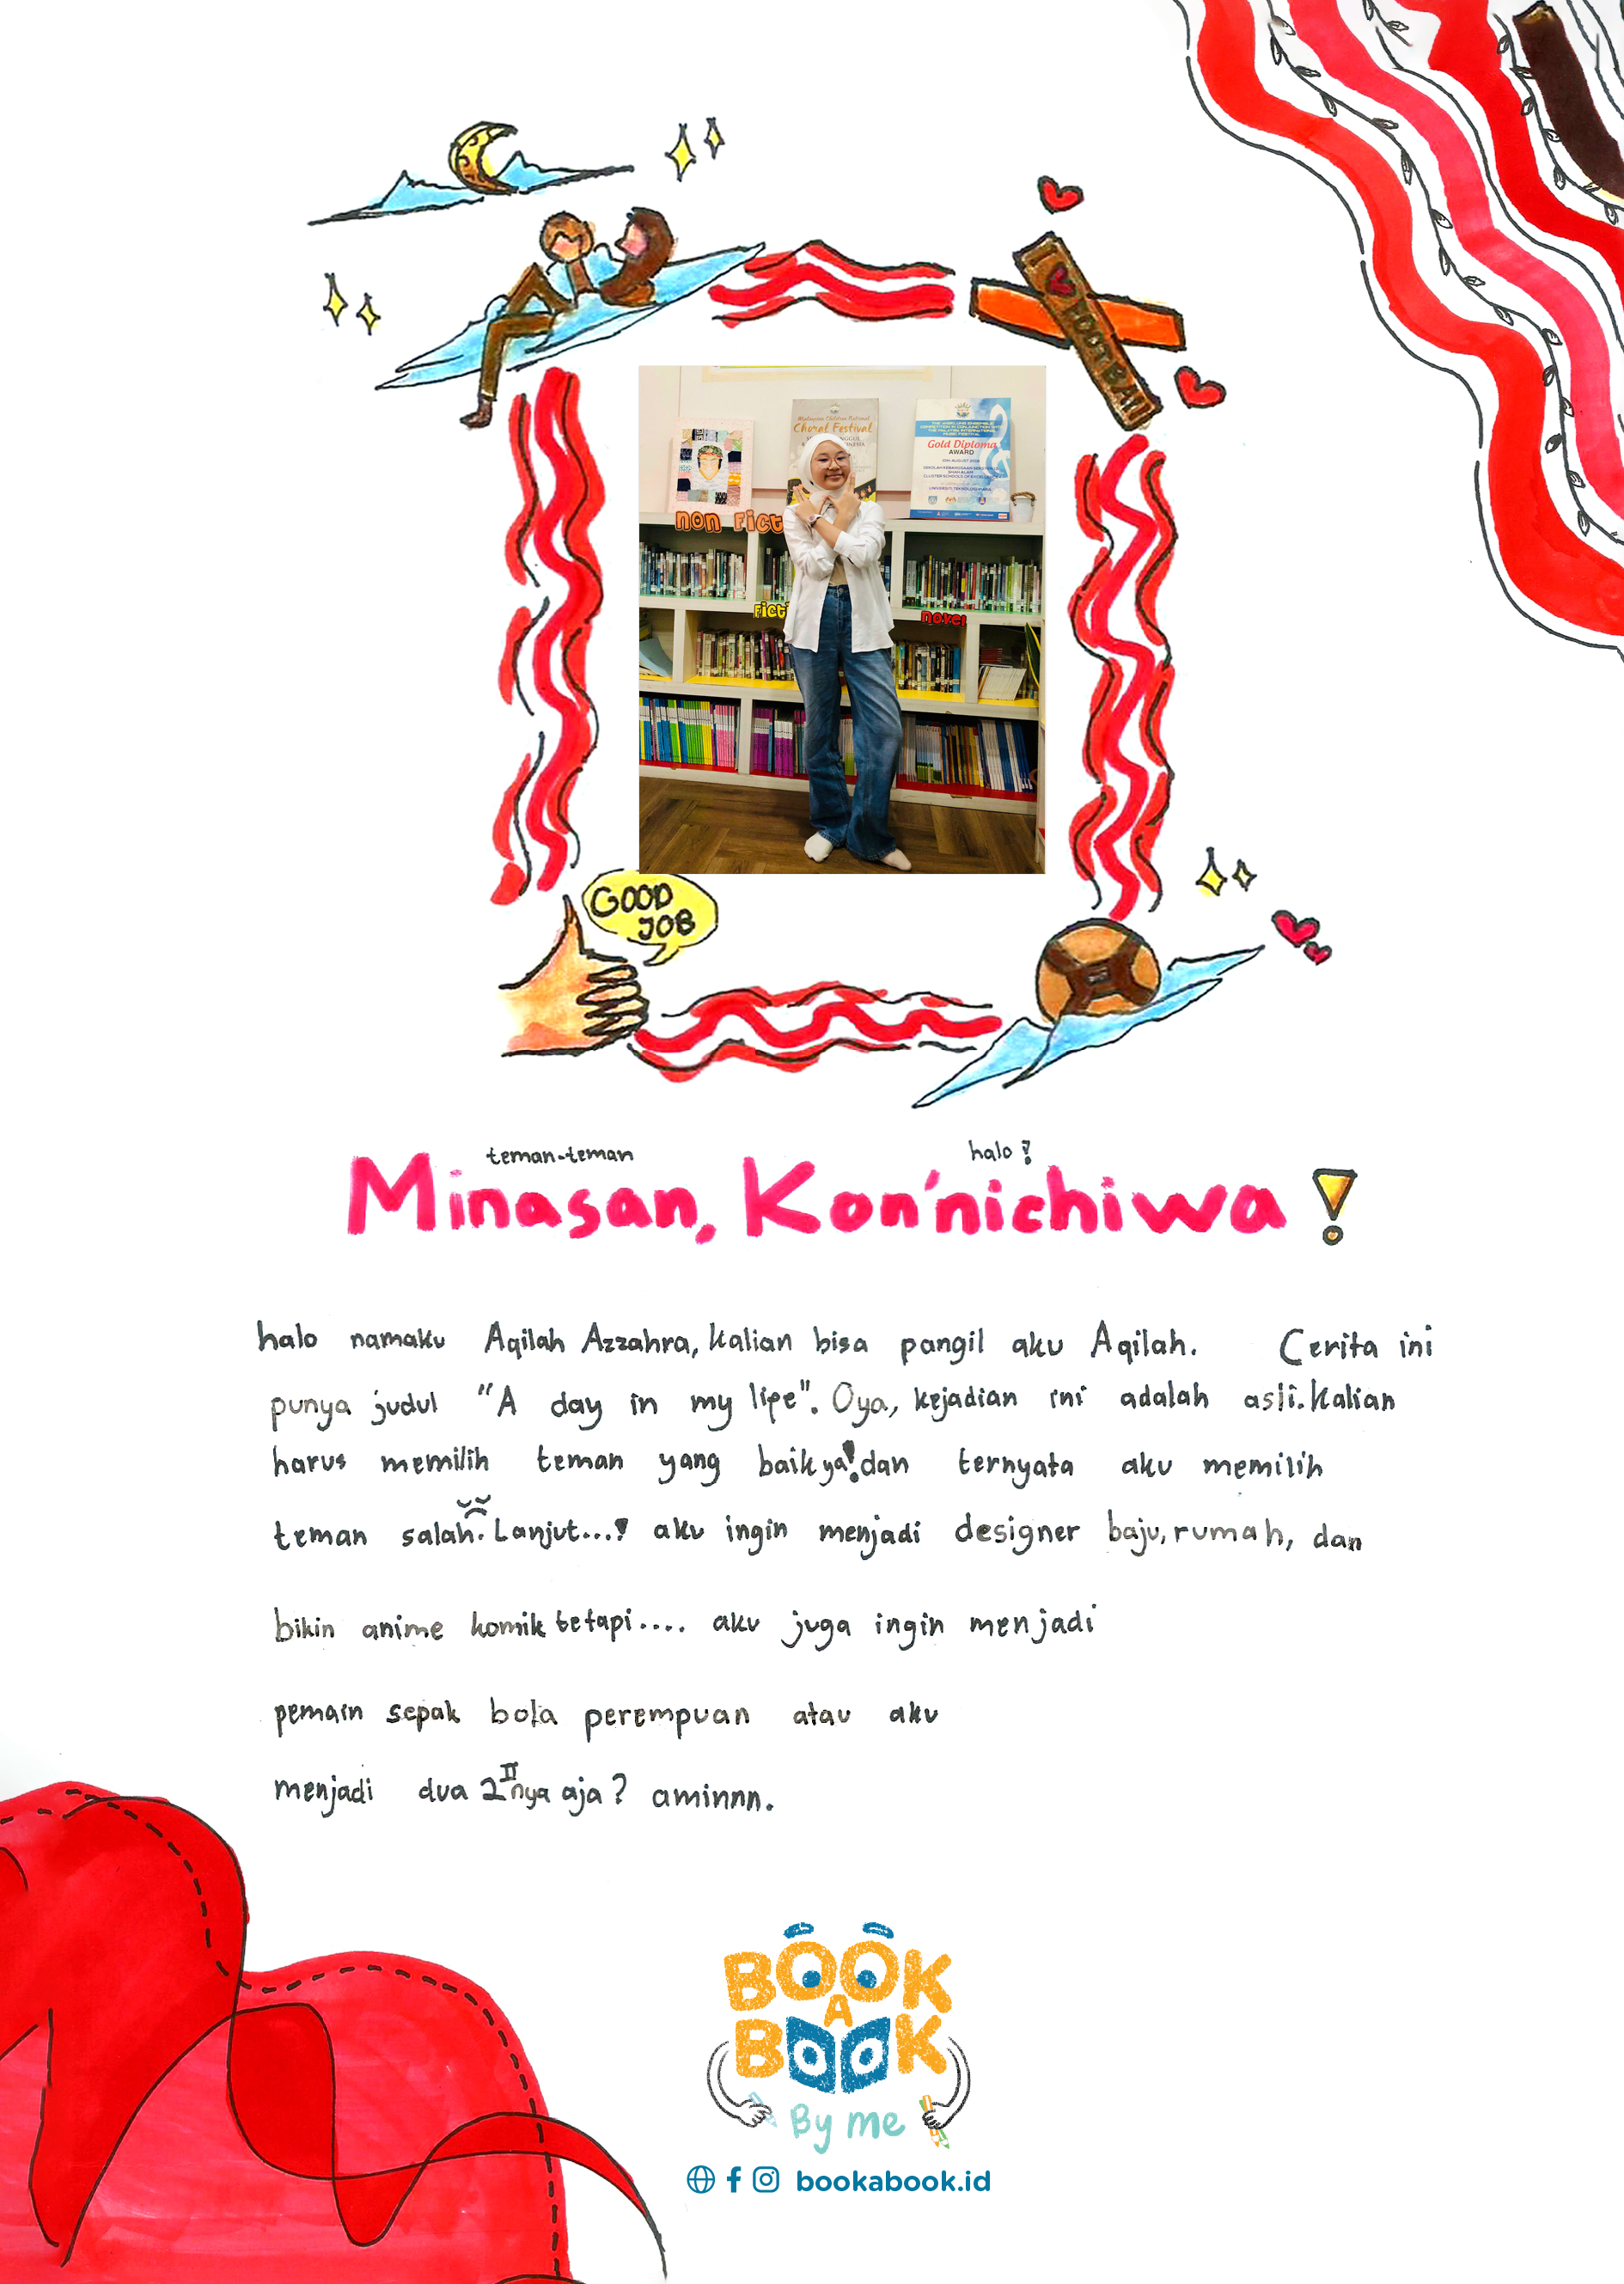 I ♥ FUTBALL
Malaysian Children National
Choral Festival
Gold Diploma
AWARD
non Fict
Ficti
novel
GOOD
JOB
teman-teman halo !
Minasan, Kon'nichiwa !
halo namaku Aqilah Azzahra, kalian bisa pangil aku Aqilah. Cerita ini
punya judul "A day in my life". Oya, kejadian ini adalah asli. Kalian
harus memilih teman yang baik ya! dan ternyata aku memilih
teman salah. Lanjut...! aku ingin menjadi designer baju, rumah, dan
bikin anime komik tetapi.... aku juga ingin menjadi
pemain sepak bola perempuan atau aku
menjadi dua 2 II nya aja? aminnn.
BOOK
A
BOOK
By me
bookabook.id